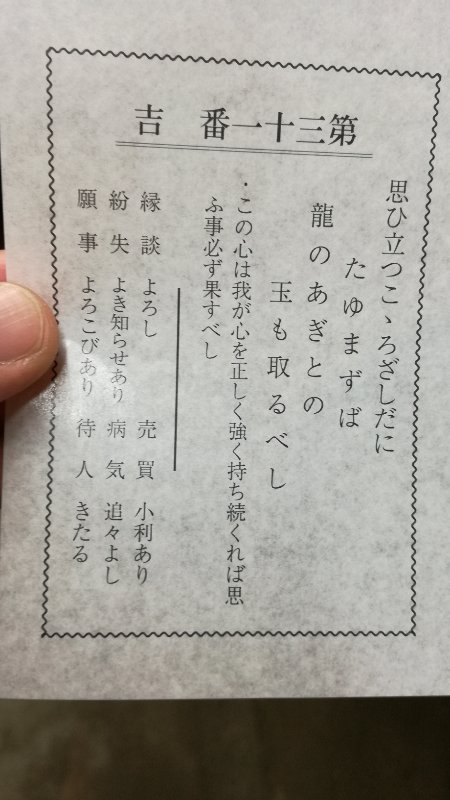 第三十一番　吉
思ひ立つこゝろざしだに
たゆまずば
龍のあぎとの
玉も取るべし
・この心は我が心を正しく強く持ち続くれば思
ふ事必ず果すべし
縁談　よろし　売買　小利あり
紛失　よき知らせあり　病気　追々よし
願事　よろこびあり　待人　きたる